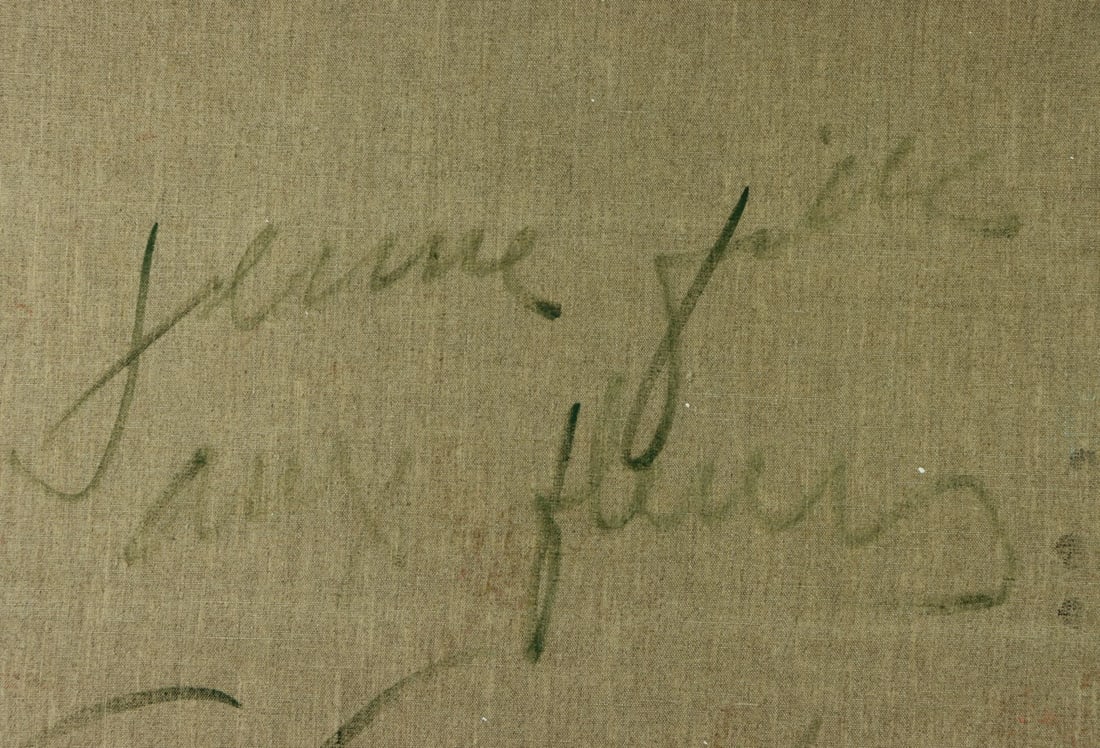 jeune fille
aux fleurs